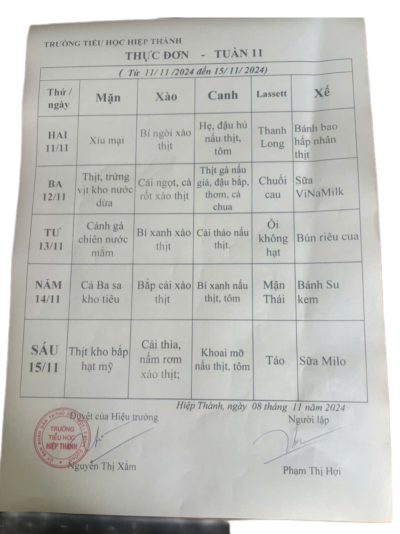 TRƯỜNG TIỂU HỌC HIỆP THÀNH
THỰC ĐƠN - TUẦN 11
( Từ 11/ 11 /2024 đến 15/ 11/ 2024)
Thứ / ngày Mặn Xào Canh Lassett Xế
HAI 11/11 Xíu mại Bí ngòi xào thịt Hẹ, đậu hủ nấu thịt, tôm Thanh Long Bánh bao hấp nhân thịt
BA 12/11 Thịt, trứng vịt kho nước dừa Cải ngọt, cà rốt xào thịt Thịt gà nấu giá, đậu bắp, thơm, cà chua Chuối cau Sữa ViNaMilk
TƯ 13/11 Cánh gà chiên nước mắm Bí xanh xào thịt Cải thảo nấu thịt. Ổi không hạt Bún riêu cua
NĂM 14/11 Cá Ba sa kho tiêu Bắp cải xào thịt Bí xanh nấu thịt, tôm Mận Thái Bánh Su kem
SÁU 15/11 Thịt kho bắp hạt mỹ Cải thìa, nấm rơm xào thịt; Khoai mỡ nấu thịt, tôm Táo Sữa Milo
Hiệp Thành, ngày 08 tháng 11 năm 2024
Duyệt của Hiệu trưởng Người lập
TRƯỜNG
TIỂU HỌC
HIỆP THÀNH
Nguyễn Thị Xẩm Phạm Thị Hợi